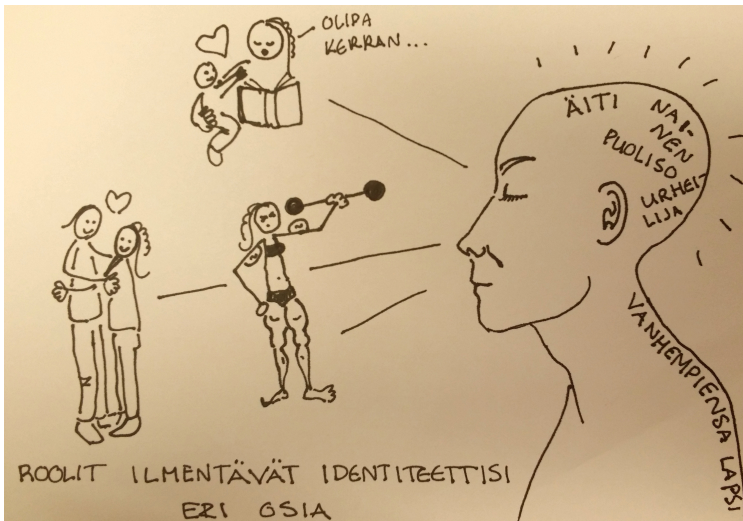 OLIPA
KERRAN...
ÄITI
NAI-
NEN
PUOLISO
URHEI-
LIJA
VANHEMPIENSA LAPSI
ROOLIT ILMENTÄVÄT IDENTITEETTISI
ERI OSIA